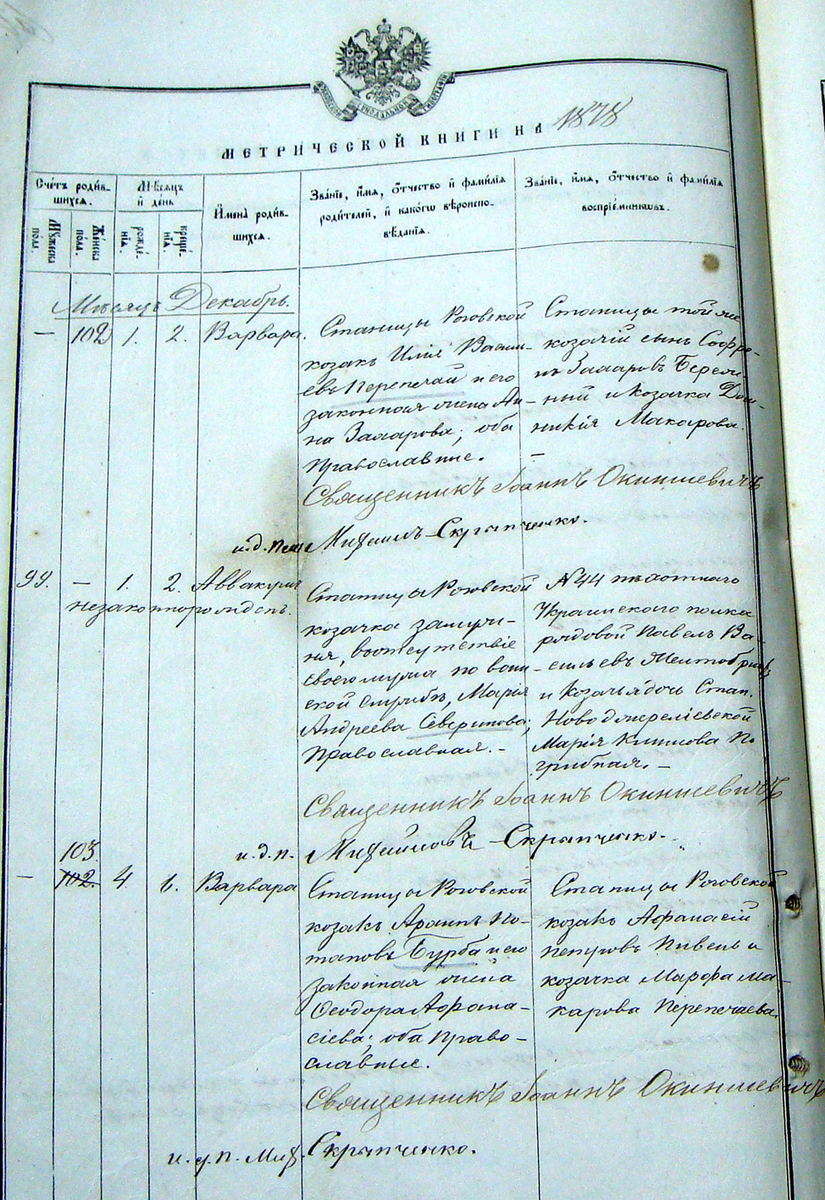 МЕТРИЧЕСКОЙ КНИГИ НА 1878
Счетъ родив-
шихся.
Мѣсяцъ
и день
Имена родив-
шихся.
Званіе, имя, отчество и фамилія
родителей, и какого вѣроиспо-
вѣданія.
Званіе, имя, отчество и фамилія
воспріемниковъ.
Мужеска
пола.
Женска
пола.
рожде-
нія.
креще-
нія.
Мѣсяцъ Декабрь.
— 102 1. 2. Варвара.
Станицы Роговской
козакъ Илія Василь-
евъ Перепечай и его
законная жена Ан-
на Захарова, оба
Православные.
Станицы той же
козачій сынъ Софро-
нъ Захаровъ
и козачка Дом-
никія Макарова.
—
Священникъ Іоаннъ Окиншевичъ
и.д. Михаилъ Скрыпченко.
99. — 1. 2. Аввакумъ
незаконнорожденъ.
Станицы Роговской
козачка замуж-
няя, въ отсутствіе
своего мужа по воин-
ской службѣ, Марія
Андреева Северинова,
Православная. —
N 44 пѣхотнаго
Украинскаго полка
рядовой Павелъ Ва-
сильевъ
и козачья дочь Стан.
Новоджереліевской
Марія
Священникъ Іоаннъ Окиншевичъ
и.д.п. Михаилъ Скрыпченко.
103.
— 102. 4. 6. Варвара
Станицы Роговской
козакъ По-
таповъ Бурба и его
законная жена
Ѳеодора Афана-
сіева; оба Право-
славные.
Станицы Роговской
козакъ Афанасій
Петровъ Пивень и
козачка Марфа Ма-
карова Перепечаева
Священникъ Іоаннъ Окиншевичъ
и.д.п. Мих. Скрыпченко.